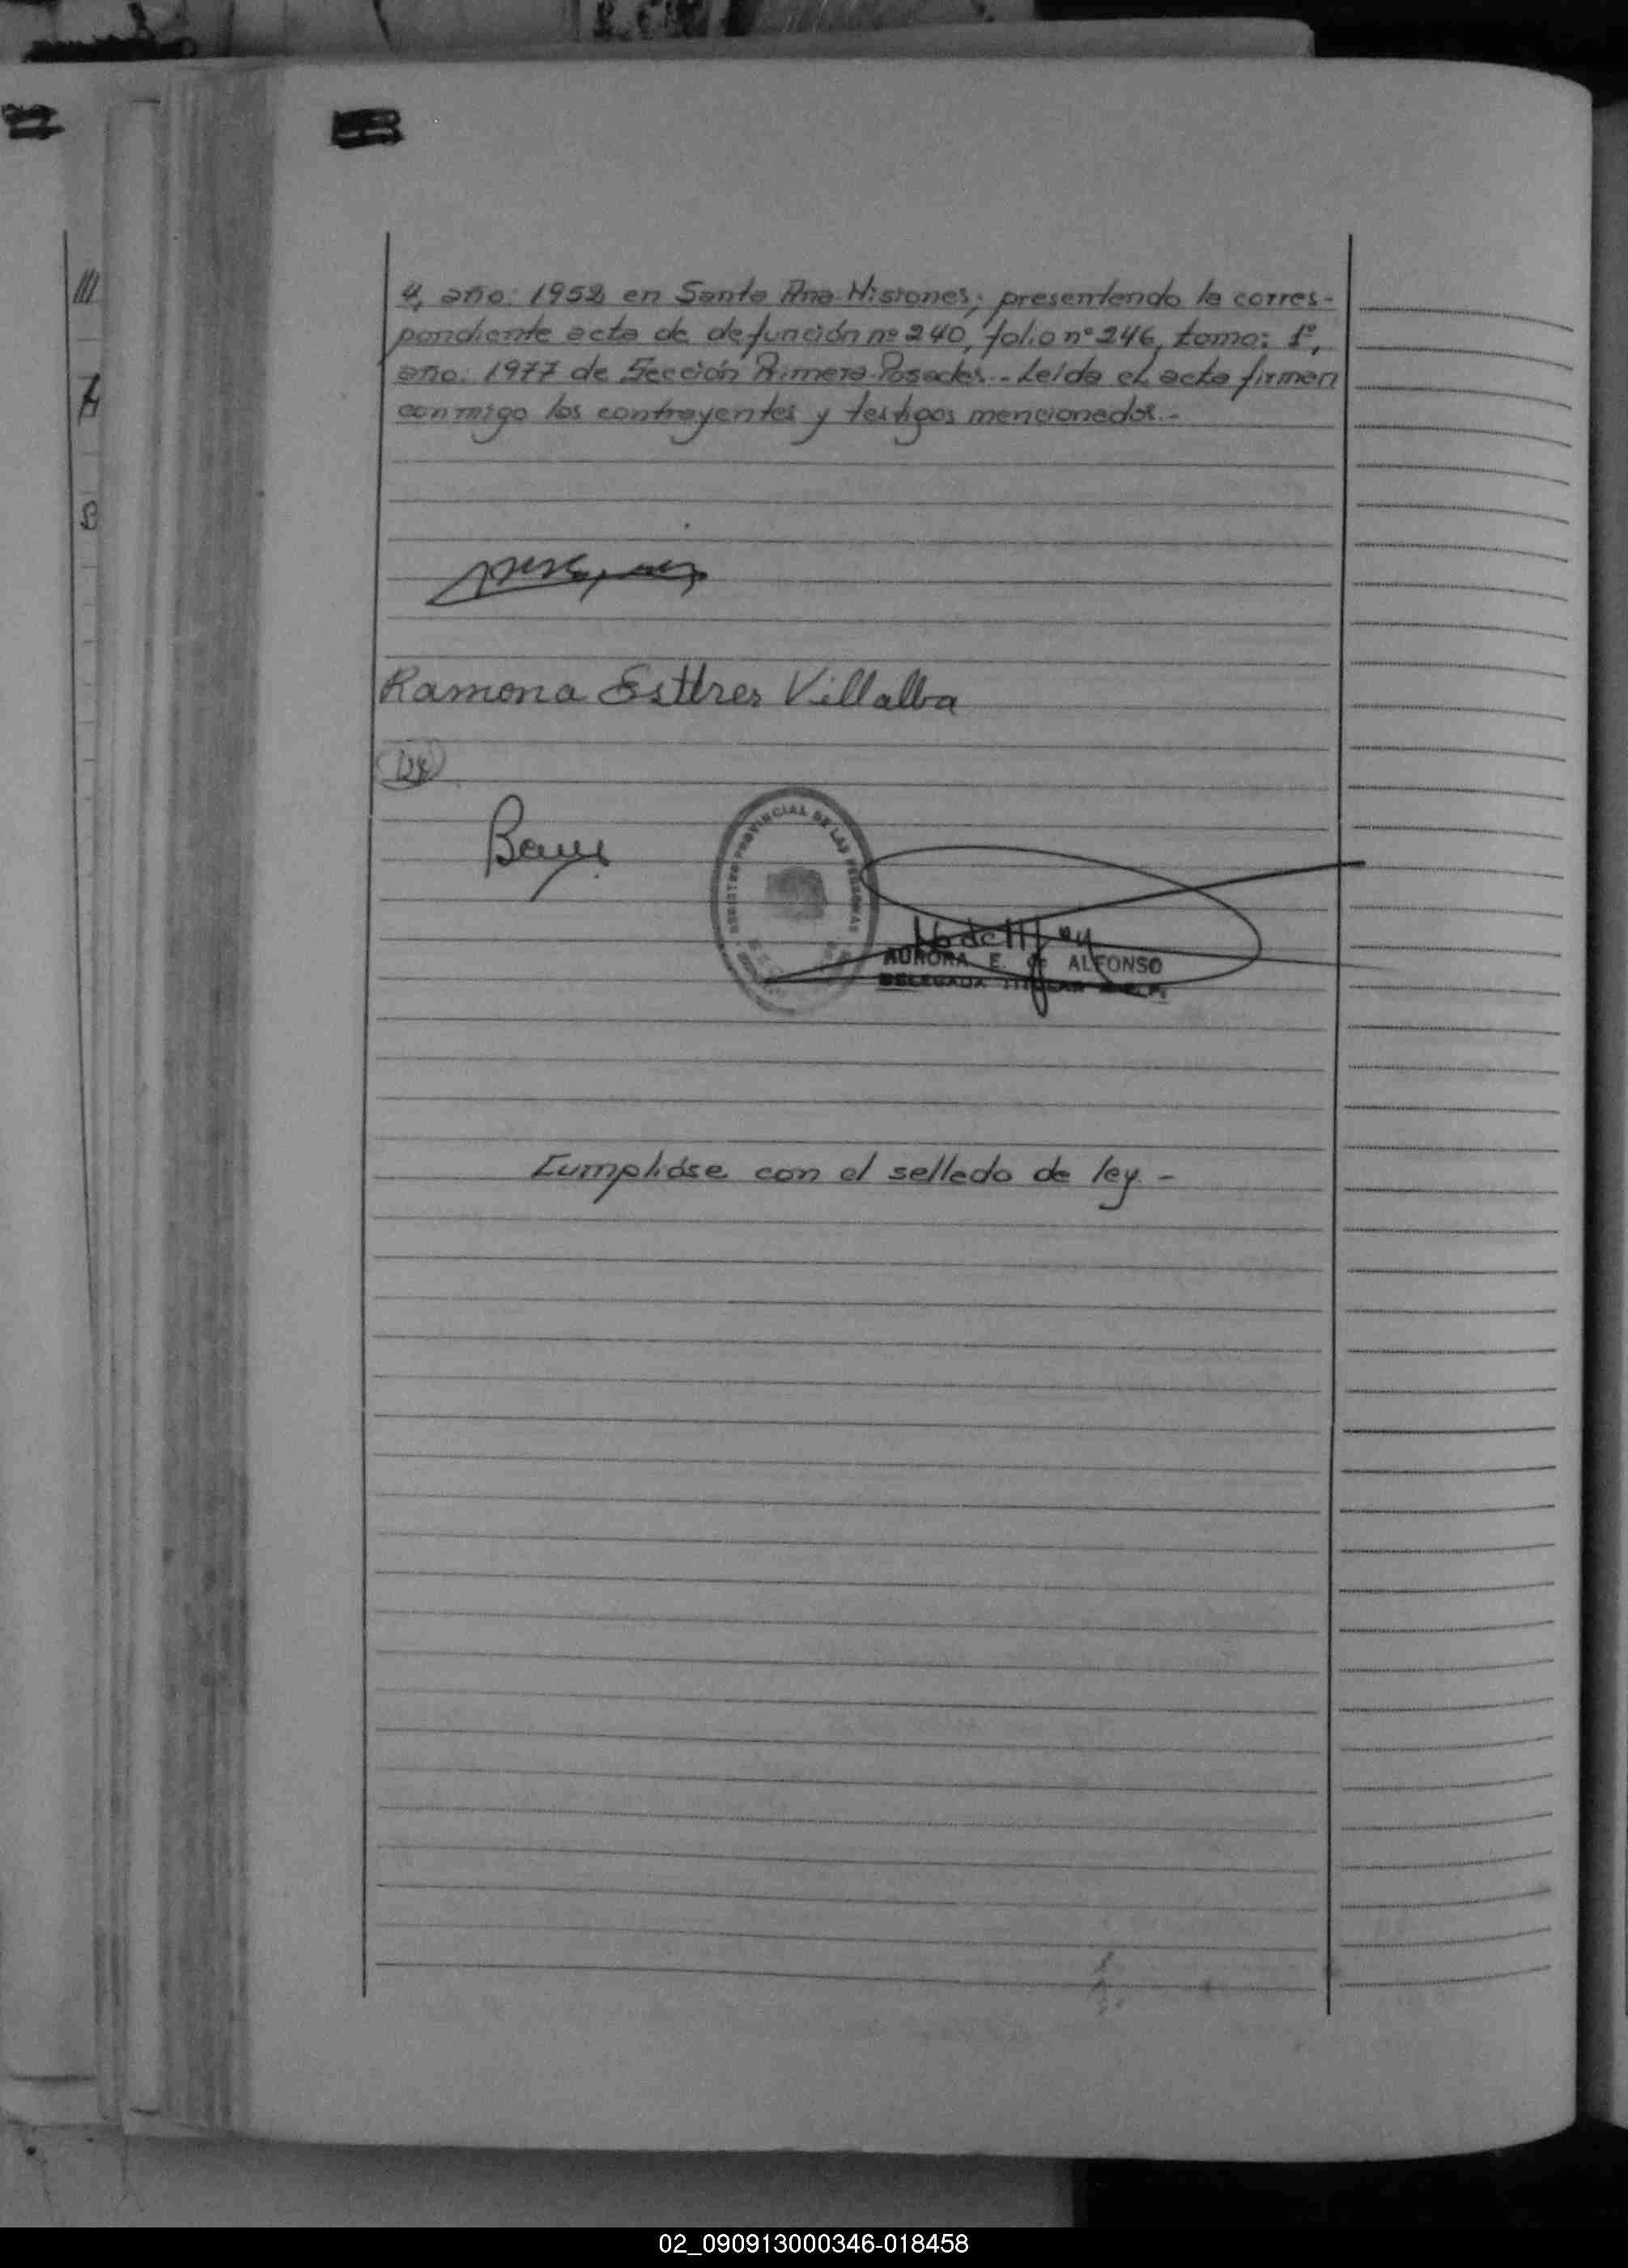 4, año: 1952 en Santa Ana-Misiones; presentando la corres-
pondiente acta de defunción nº 240, folio nº 246, tomo: 1º,
año: 1977 de Sección Primera-Posadas.- Leída el acta firman
conmigo los contrayentes y testigos mencionados.-
Ramona Esther Villalba
REGISTRO PROVINCIAL DE LAS PERSONAS
AURORA E. de ALFONSO
DELEGADA TITULAR
Cumplióse con el sellado de ley.-
02_090913000346-018458